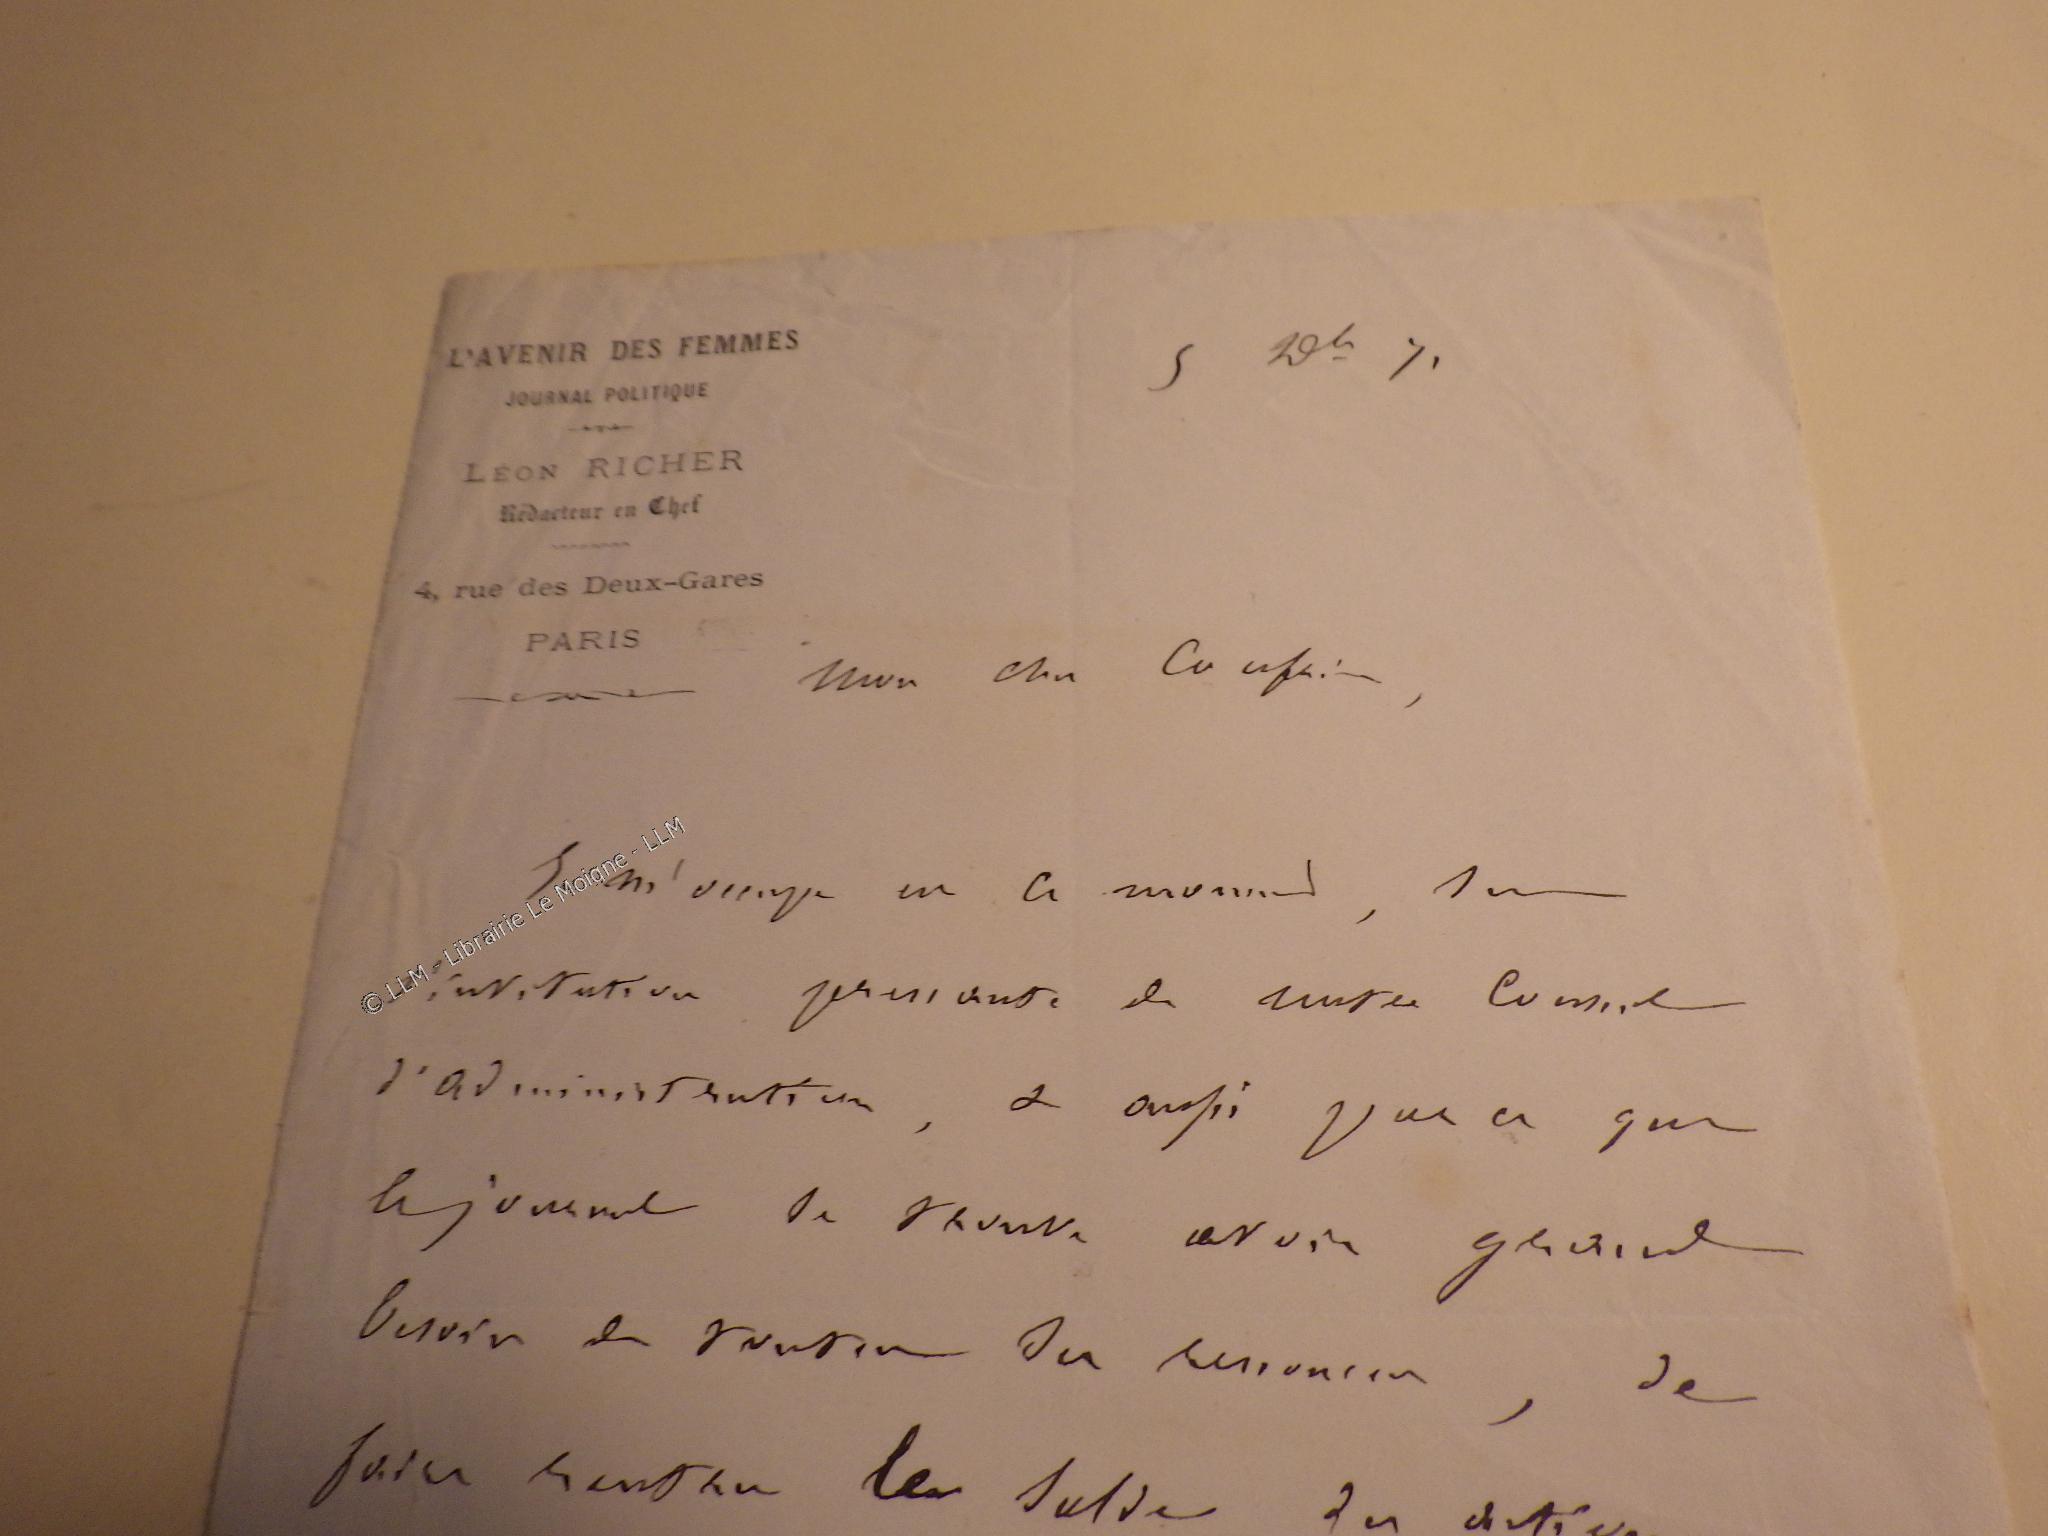 L'AVENIR DES FEMMES
JOURNAL POLITIQUE
LÉON RICHER
Rédacteur en Chef
4, rue des Deux-Gares
PARIS
5 Xbre 71
Mon cher
Je m'occupe en ce moment, sur
l'invitation pressante de notre Conseil
d'administration, & aussi parce que
le journal se trouve avoir grand
besoin de toutes ses ressources, de
faire rentrer le solde des actions
© LLM - Librairie Le Moigne - LLM